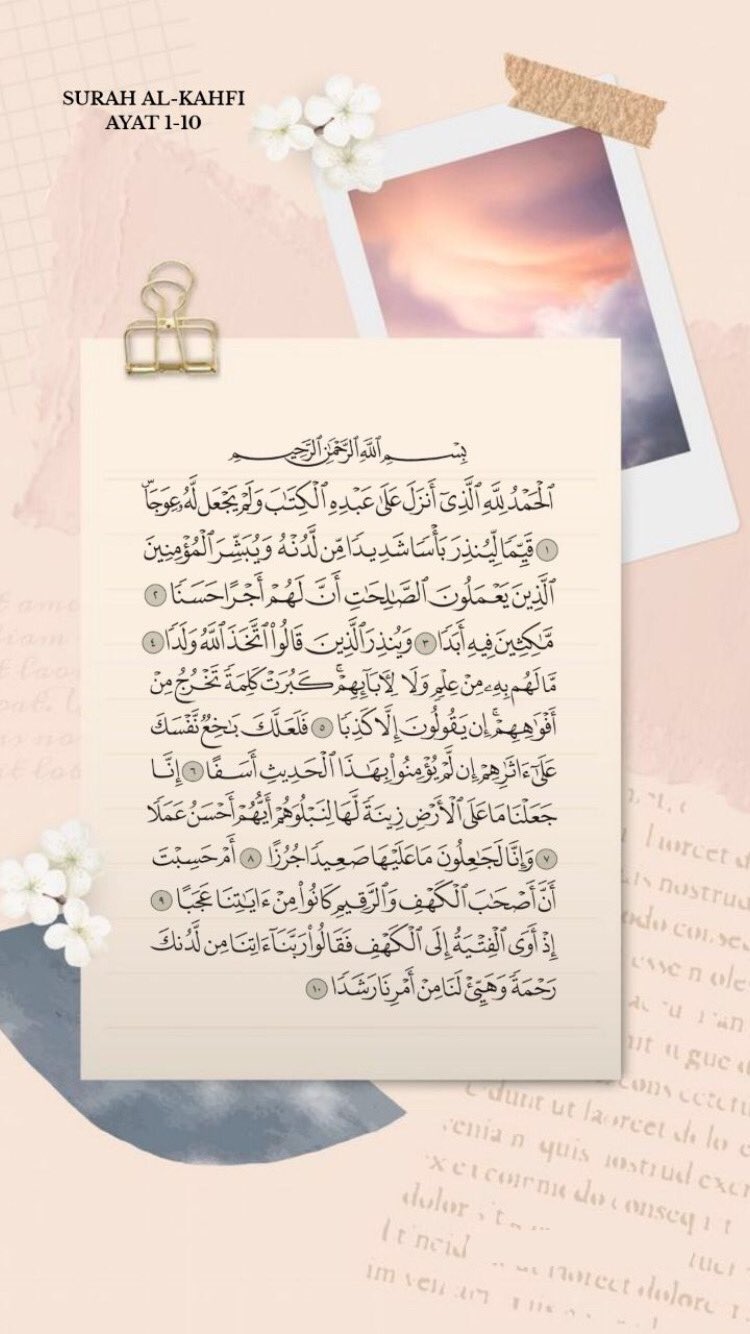 SURAH AL-KAHFI
AYAT 1-10
بِسْمِ ٱللَّهِ ٱلرَّحْمَٰنِ ٱلرَّحِيمِ
ٱلْحَمْدُ لِلَّهِ ٱلَّذِىٓ أَنزَلَ عَلَىٰ عَبْدِهِ ٱلْكِتَٰبَ وَلَمْ يَجْعَل لَّهُۥ عِوَجَاۜ
١ قَيِّمًا لِّيُنذِرَ بَأْسًا شَدِيدًا مِّن لَّدُنْهُ وَيُبَشِّرَ ٱلْمُؤْمِنِينَ
ٱلَّذِينَ يَعْمَلُونَ ٱلصَّٰلِحَٰتِ أَنَّ لَهُمْ أَجْرًا حَسَنًا ٢
مَّٰكِثِينَ فِيهِ أَبَدًا ٣ وَيُنذِرَ ٱلَّذِينَ قَالُوا۟ ٱتَّخَذَ ٱللَّهُ وَلَدًا ٤
مَّا لَهُم بِهِۦ مِنْ عِلْمٍ وَلَا لِءَابَآئِهِمْ ۚ كَبُرَتْ كَلِمَةً تَخْرُجُ مِنْ
أَفْوَٰهِهِمْ ۚ إِن يَقُولُونَ إِلَّا كَذِبًا ٥ فَلَعَلَّكَ بَٰخِعٌ نَّفْسَكَ
عَلَىٰٓ ءَاثَٰرِهِمْ إِن لَّمْ يُؤْمِنُوا۟ بِهَٰذَا ٱلْحَدِيثِ أَسَفًا ٦ إِنَّا
جَعَلْنَا مَا عَلَى ٱلْأَرْضِ زِينَةً لَّهَا لِنَبْلُوَهُمْ أَيُّهُمْ أَحْسَنُ عَمَلًا
٧ وَإِنَّا لَجَٰعِلُونَ مَا عَلَيْهَا صَعِيدًا جُرُزًا ٨ أَمْ حَسِبْتَ
أَنَّ أَصْحَٰبَ ٱلْكَهْفِ وَٱلرَّقِيمِ كَانُوا۟ مِنْ ءَايَٰتِنَا عَجَبًا ٩
إِذْ أَوَى ٱلْفِتْيَةُ إِلَى ٱلْكَهْفِ فَقَالُوا۟ رَبَّنَآ ءَاتِنَا مِن لَّدُنكَ
رَحْمَةً وَهَيِّئْ لَنَا مِنْ أَمْرِنَا رَشَدًا ١٠
nostrud
ut laoreet
quis nostrud
dolor
dolore